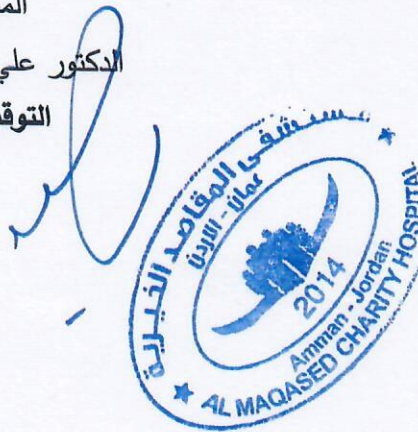 الدكتور علي
مستشفى المقاصد الخيرية
عمان - الاردن
2014
Amman - Jordan
AL MAQASED CHARITY HOSPITAL